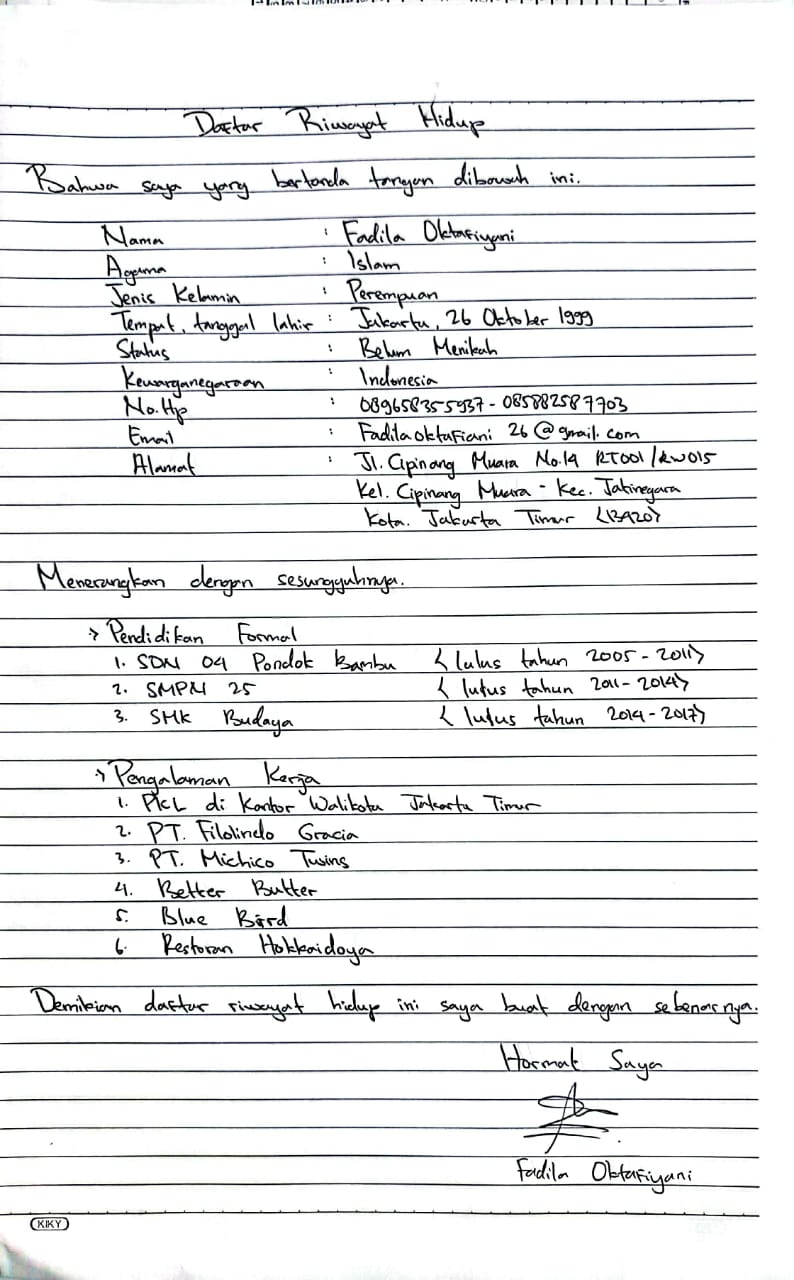 Daftar Riwayat Hidup
Bahwa saya yang bertanda tangan dibawah ini.
Nama : Fadila Oktafiyani
Agama : Islam
Jenis Kelamin : Perempuan
Tempat, tanggal lahir : Jakarta, 26 Oktober 1999
Status : Belum Menikah
Kewarganegaraan : Indonesia
No.Hp : 089658355937 - 085882587703
Email : Fadilaoktafiani 26@gmail.com
Alamat : Jl. Cipinang Muara No.14 RT001/RW015
Kel. Cipinang Muara - Kec. Jatinegara
Kota. Jakarta Timur (13420)
Menerangkan dengan sesungguhnya.
→ Pendidikan Formal
1. SDN 04 Pondok Bambu ( lulus tahun 2005 - 2011)
2. SMPN 25 ( lulus tahun 2011 - 2014)
3. SMK Budaya ( lulus tahun 2014 - 2017)
→ Pengalaman Kerja
1. PKL di Kantor Walikota Jakarta Timur
2. PT. Filolindo Gracia
3. PT. Michico Twins
4. Better Butter
5. Blue Bird
6. Restoran Hokkaidoya
Demikian daftar riwayat hidup ini saya buat dengan sebenarnya.
Hormat Saya
Fadila Oktafiyani
KIKY